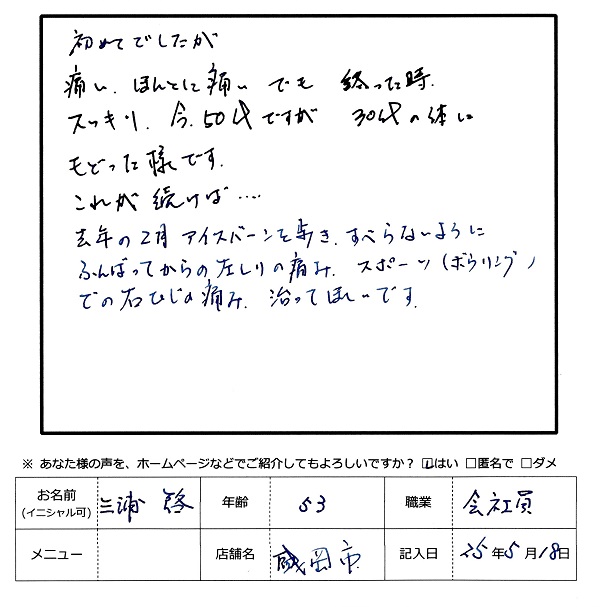 初めてでしたが
痛い、ほんとに痛い でも 終った時、
スッキリ、今、50代ですが 30代の体に
もどった様です。
これが続けば‥‥
去年の2月 アイスバーンを歩き、すべらないように
ふんばってからの左しりの痛み、スポーツ(ボウリング)
での右ひじの痛み、治ってほしいです。
※ あなた様の声を、ホームページなどでご紹介してもよろしいですか？ ☑はい □匿名で □ダメ
お名前 (イニシャル可) 三浦 啓 年齢 53 職業 会社員
メニュー 店舗名 盛岡市 記入日 25年5月18日